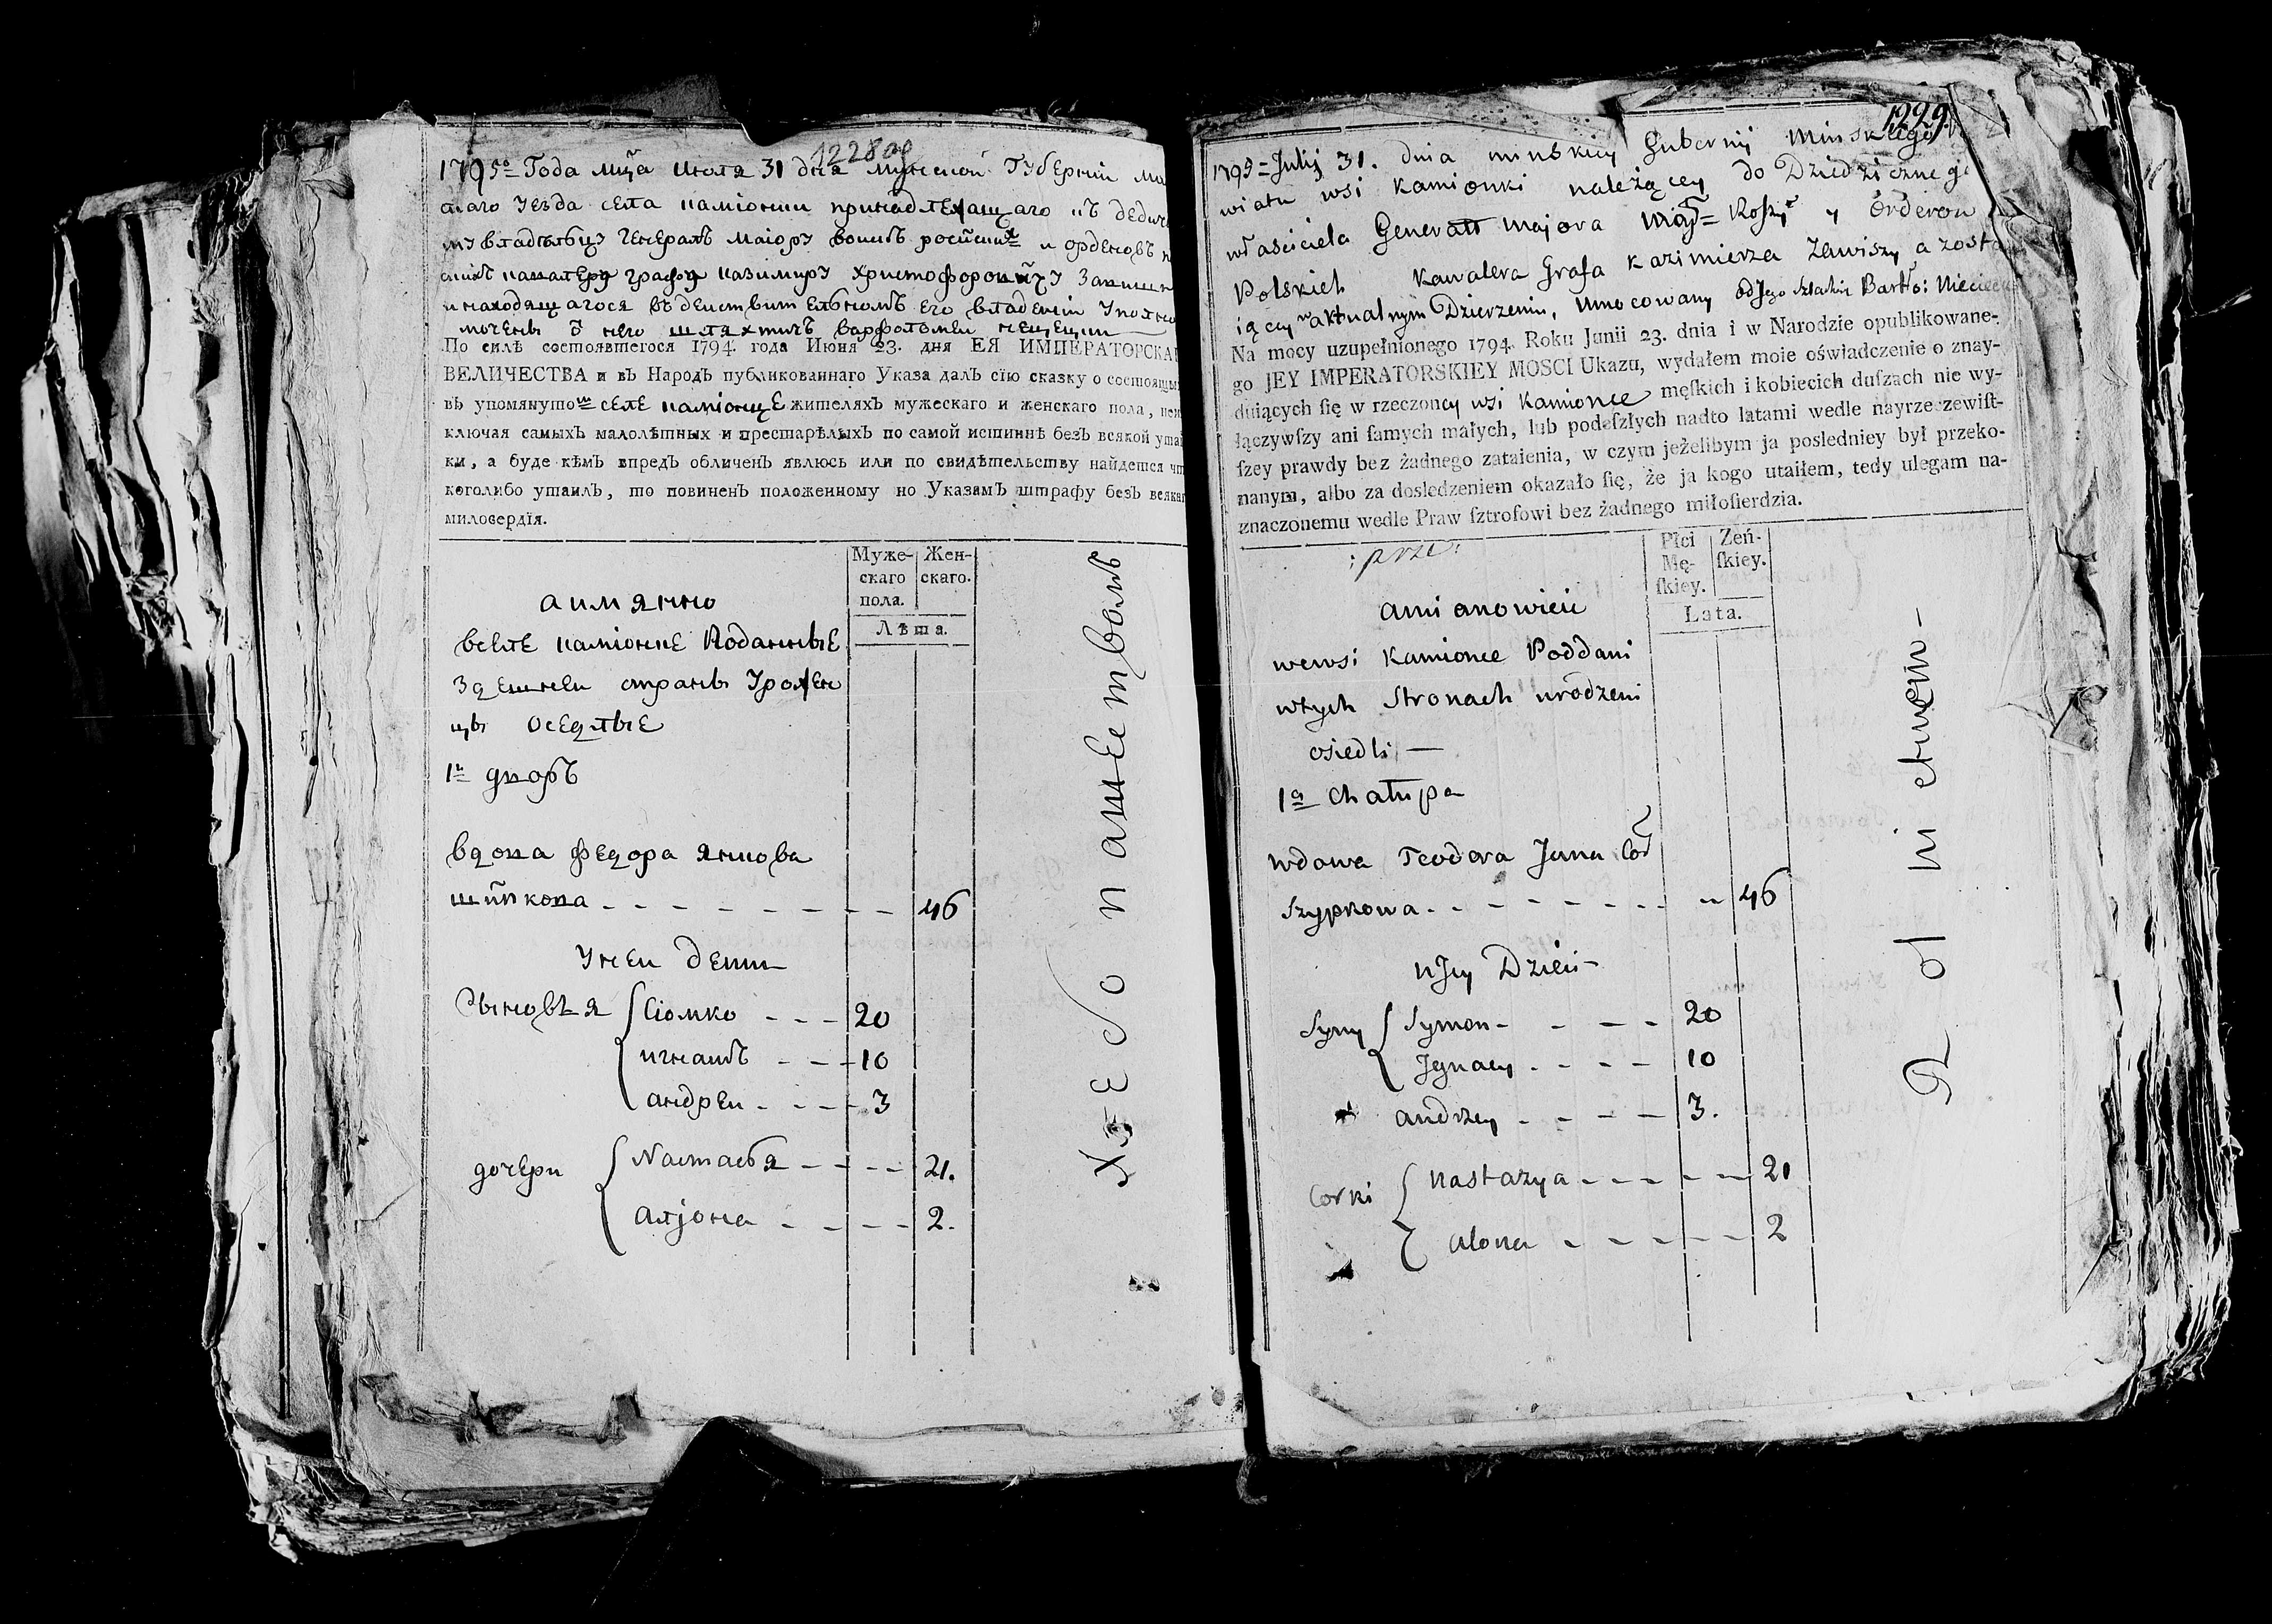 1228об
1795го Года мца июля 31 дня минской Губерніи Ми
скаго уезда села каміонки принадлежащаго къ дедич
му владѣльцу Генералъ маіору воискъ росiйски и орденовъ
скихъ кавалеру графу казимиру христофоровичу Завиши
и находящагося въ деиствительномъ его владеніи уполно
моченъ от него шляхтичъ варфоломеи нецецки
По силѣ состоявшегося 1794. года Июня 23. дня ЕЯ ИМПЕРАТОРСКА
ВЕЛИЧЕСТВА и въ Народъ публикованнаго Указа далъ сїю сказку о состоящи
въ упомянутом селе каміонце жителяхъ мужескаго и женскаго пола, неи
ключая самыхъ малолѣтныхъ и престарѣлыхъ по самой истиннѣ безъ всякой утай
ки, а буде кѣмъ впредъ обличенъ явлюсь или по свидѣтельству найдется чт
коголибо утаилъ, то повиненъ положенному по Указамъ штрафу безъ всяка
милосердїя.
Муже-скаго пола. Жен-скаго.
Лѣта.
а имянно
вселе каміонке Подданные
здешнеи страны урожен
цы оседлые
1й дворъ
вдова федора янкова
шипкова - - - - - - - - 46
у неи дети
Сыновья Сіомко - - - 20
игнатъ - - - 10
андреи - - - - 3
дочери Настасья - - - - 21.
алiона - - - - 2.
Хресопашетвомъ
1229
1795 Julij 31. dnia minskiey Gubernij Minskiego
wiatu wsi Kamionki należącey do Dziedzicznego
właściciela Generall majora Woys= Roszy y Orderow
Polskich Kawalera Grafa Kazimierza Zawiszy a zosta
iącey w aktualnym Dzierzeniu, Umocowany od Jego Szlachcic Barto: Niecieck
Na mocy uzupełnionego 1794. Roku Junii 23. dnia i w Narodzie opublikowane-
go JEY IMPERATORSKIEY MOSCI Ukazu, wydałem moie oświadczenie o znay-
duiących ſię w rzeczoney wsi Kamionce męſkich i kobiecich duſzach nie wy-
łączywſzy ani ſamych małych, lub podeſzłych nadto latami wedle nayrzeczewiſt-
ſzey prawdy bez żadnego zataienia, w czym jeżelibym ja posledniey był przeko-
nanym, albo za dosledzeniem okazało ſię, że ja kogo utaiłem, tedy ulegam na-
znaczonemu wedle Praw ſztrofowi bez żadnego miłoſierdzia.
: prze:
Płci Mę-ſkiey. Żeń-ſkiey.
Lata.
amianowicie
wewsi Kamionce Poddani
wtych Stronach urodzeni
osiedli —
1a chałupa
wdowa Teodora Jana Cor
Szypkowa - - - - - - - - 46
u Jey Dzieci
Syny Symon - - - - 20
Jgnacy - - - - 10
andrzey - - - - 3.
Corki Nastazya - - - - - - 21
alona - - - - - - 2
Rolnictwem -